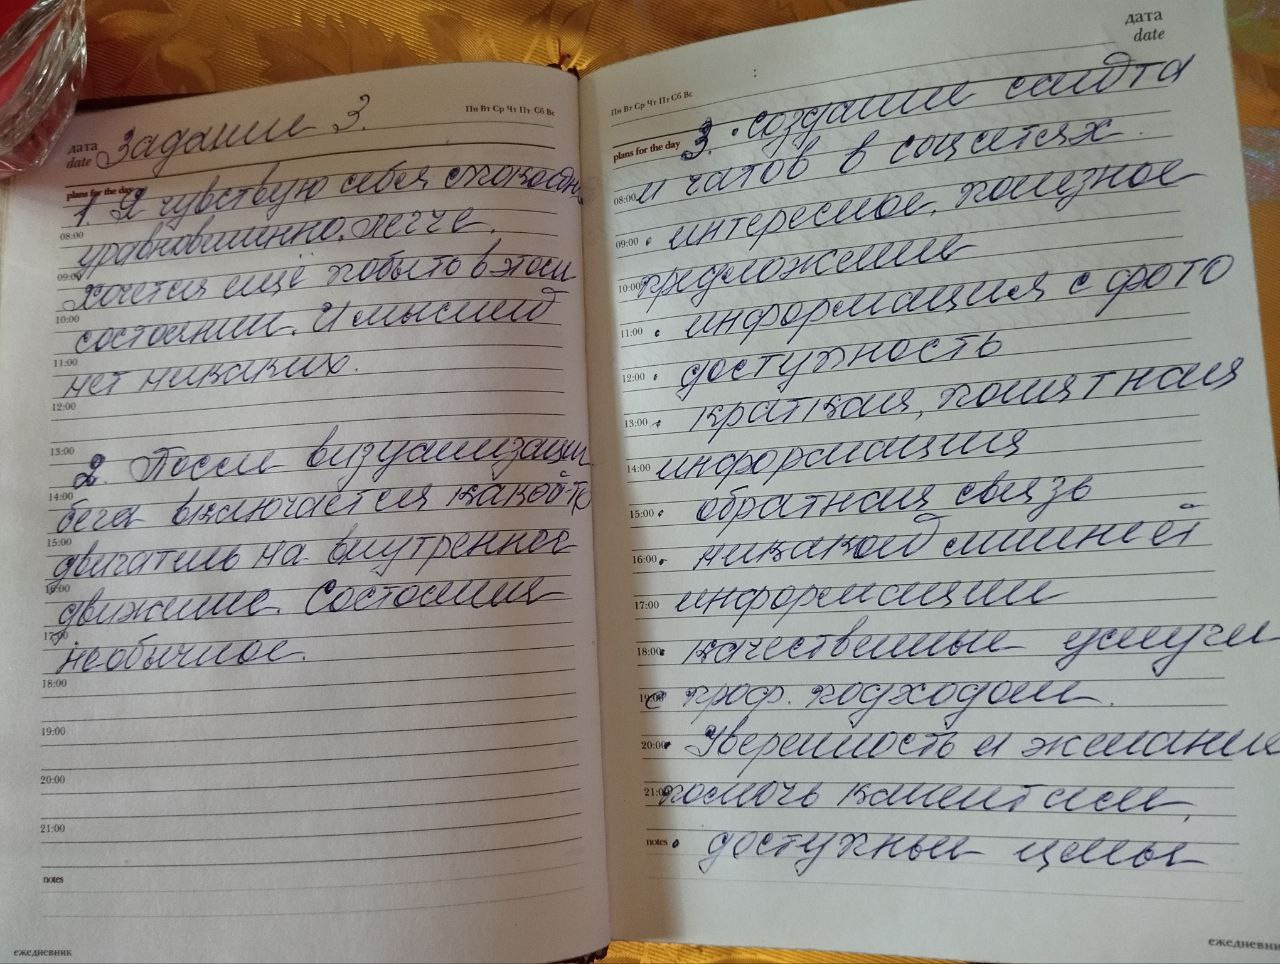 Пн Вт Ср Чт Пт Сб Вс
дата
date
Задание 3.
plans for the day
1 Я чувствую себя спокойно,
08:00
уравновешенно, легче.
09:00
Хочется ещё побыть в этом
10:00
состоянии. И мыслей
11:00
нет никаких.
12:00
13:00
2. После визуализации
14:00
бега включается какой-то
15:00
двигатель на внутреннее
16:00
движение. Состояние
17:00
необычное.
18:00
19:00
20:00
21:00
notes
ежедневник
дата
date
Пн Вт Ср Чт Пт Сб Вс
plans for the day
3. • создание сайта
08:00 и чатов в соцсетях.
09:00 • интересное, полезное
10:00 предложение
11:00 • информация с фото
12:00 • доступность
13:00 • краткая, понятная
14:00 информация
15:00 • обратная связь
16:00 • никакой лишней
17:00 информации
18:00 • качественные услуги
19:00 с проф. подходом.
20:00 • Уверенность и желание
21:00 помочь клиентам,
notes • доступные цены
ежедневник